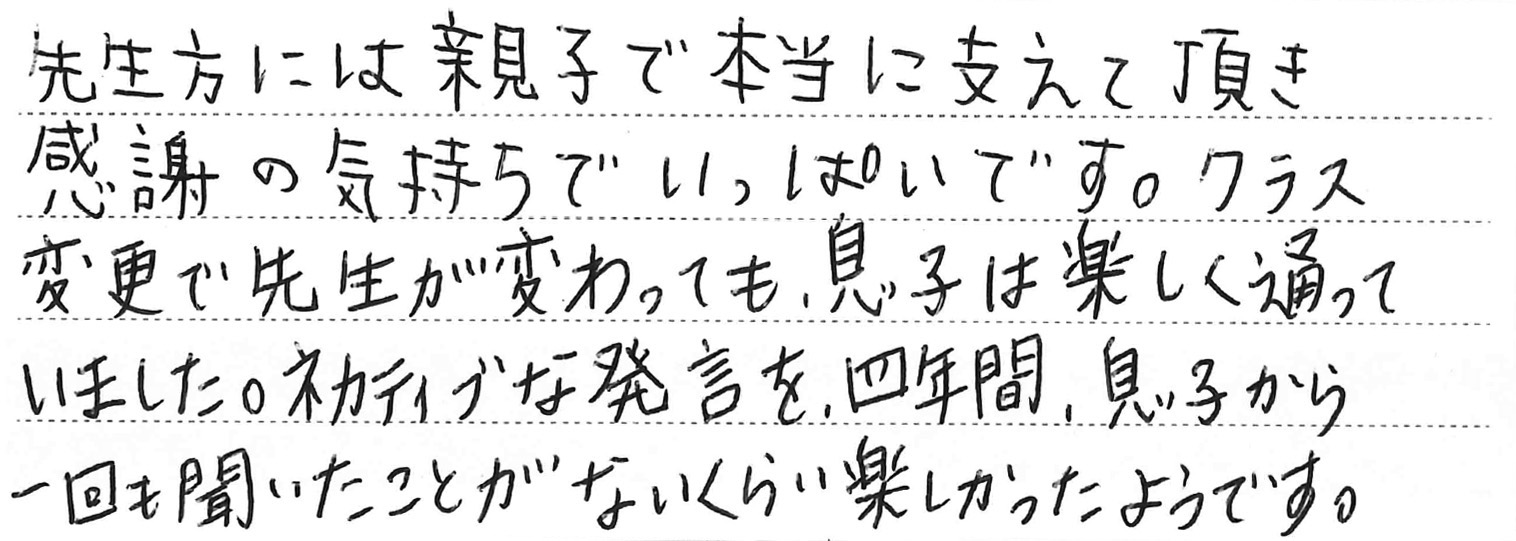 先生方には親子で本当に支えて頂き
感謝の気持ちでいっぱいです。クラス
変更で先生が変わっても、息子は楽しく通って
いました。ネカティブな発言を、四年間、息子から
一回も聞いたことがないくらい楽しかったようです。